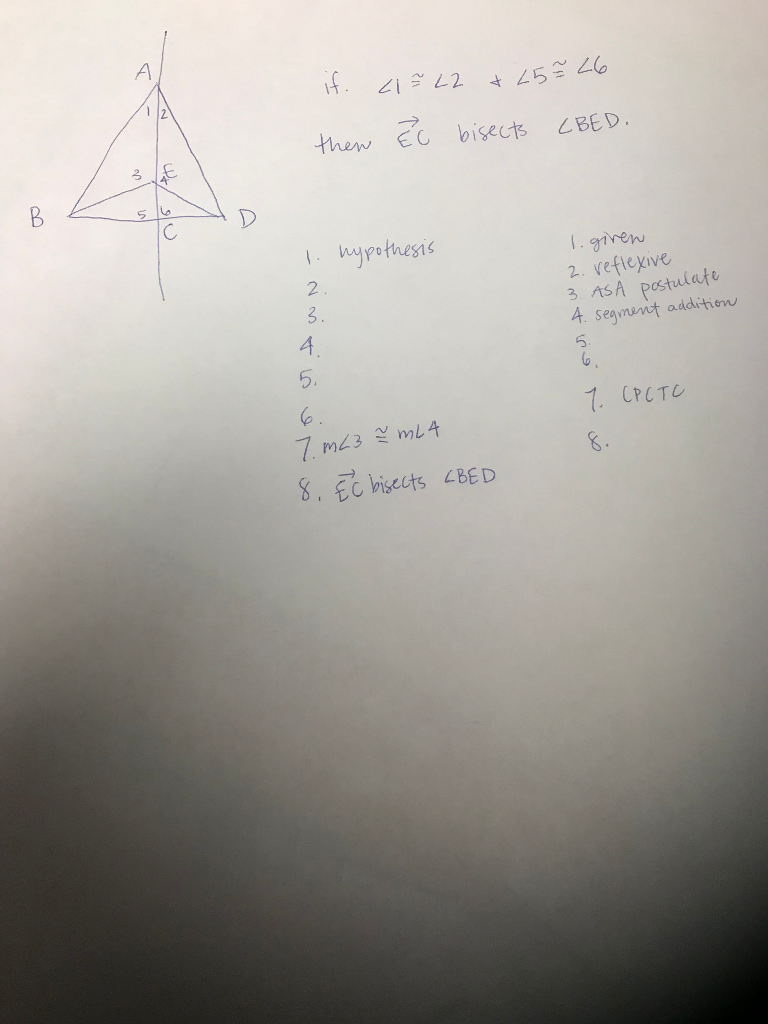 A
1 2
3 E
4
B 5 6 D
C
if. ∠1 ≅ ∠2 + ∠5 ≅ ∠6
then EC→ bisects ∠BED.
1. hypothesis
2.
3.
4.
5.
6.
7. m∠3 ≅ m∠4
8. EC→ bisects ∠BED
1. given
2. reflexive
3. ASA postulate
4. segment addition
5.
6.
7. CPCTC
8.